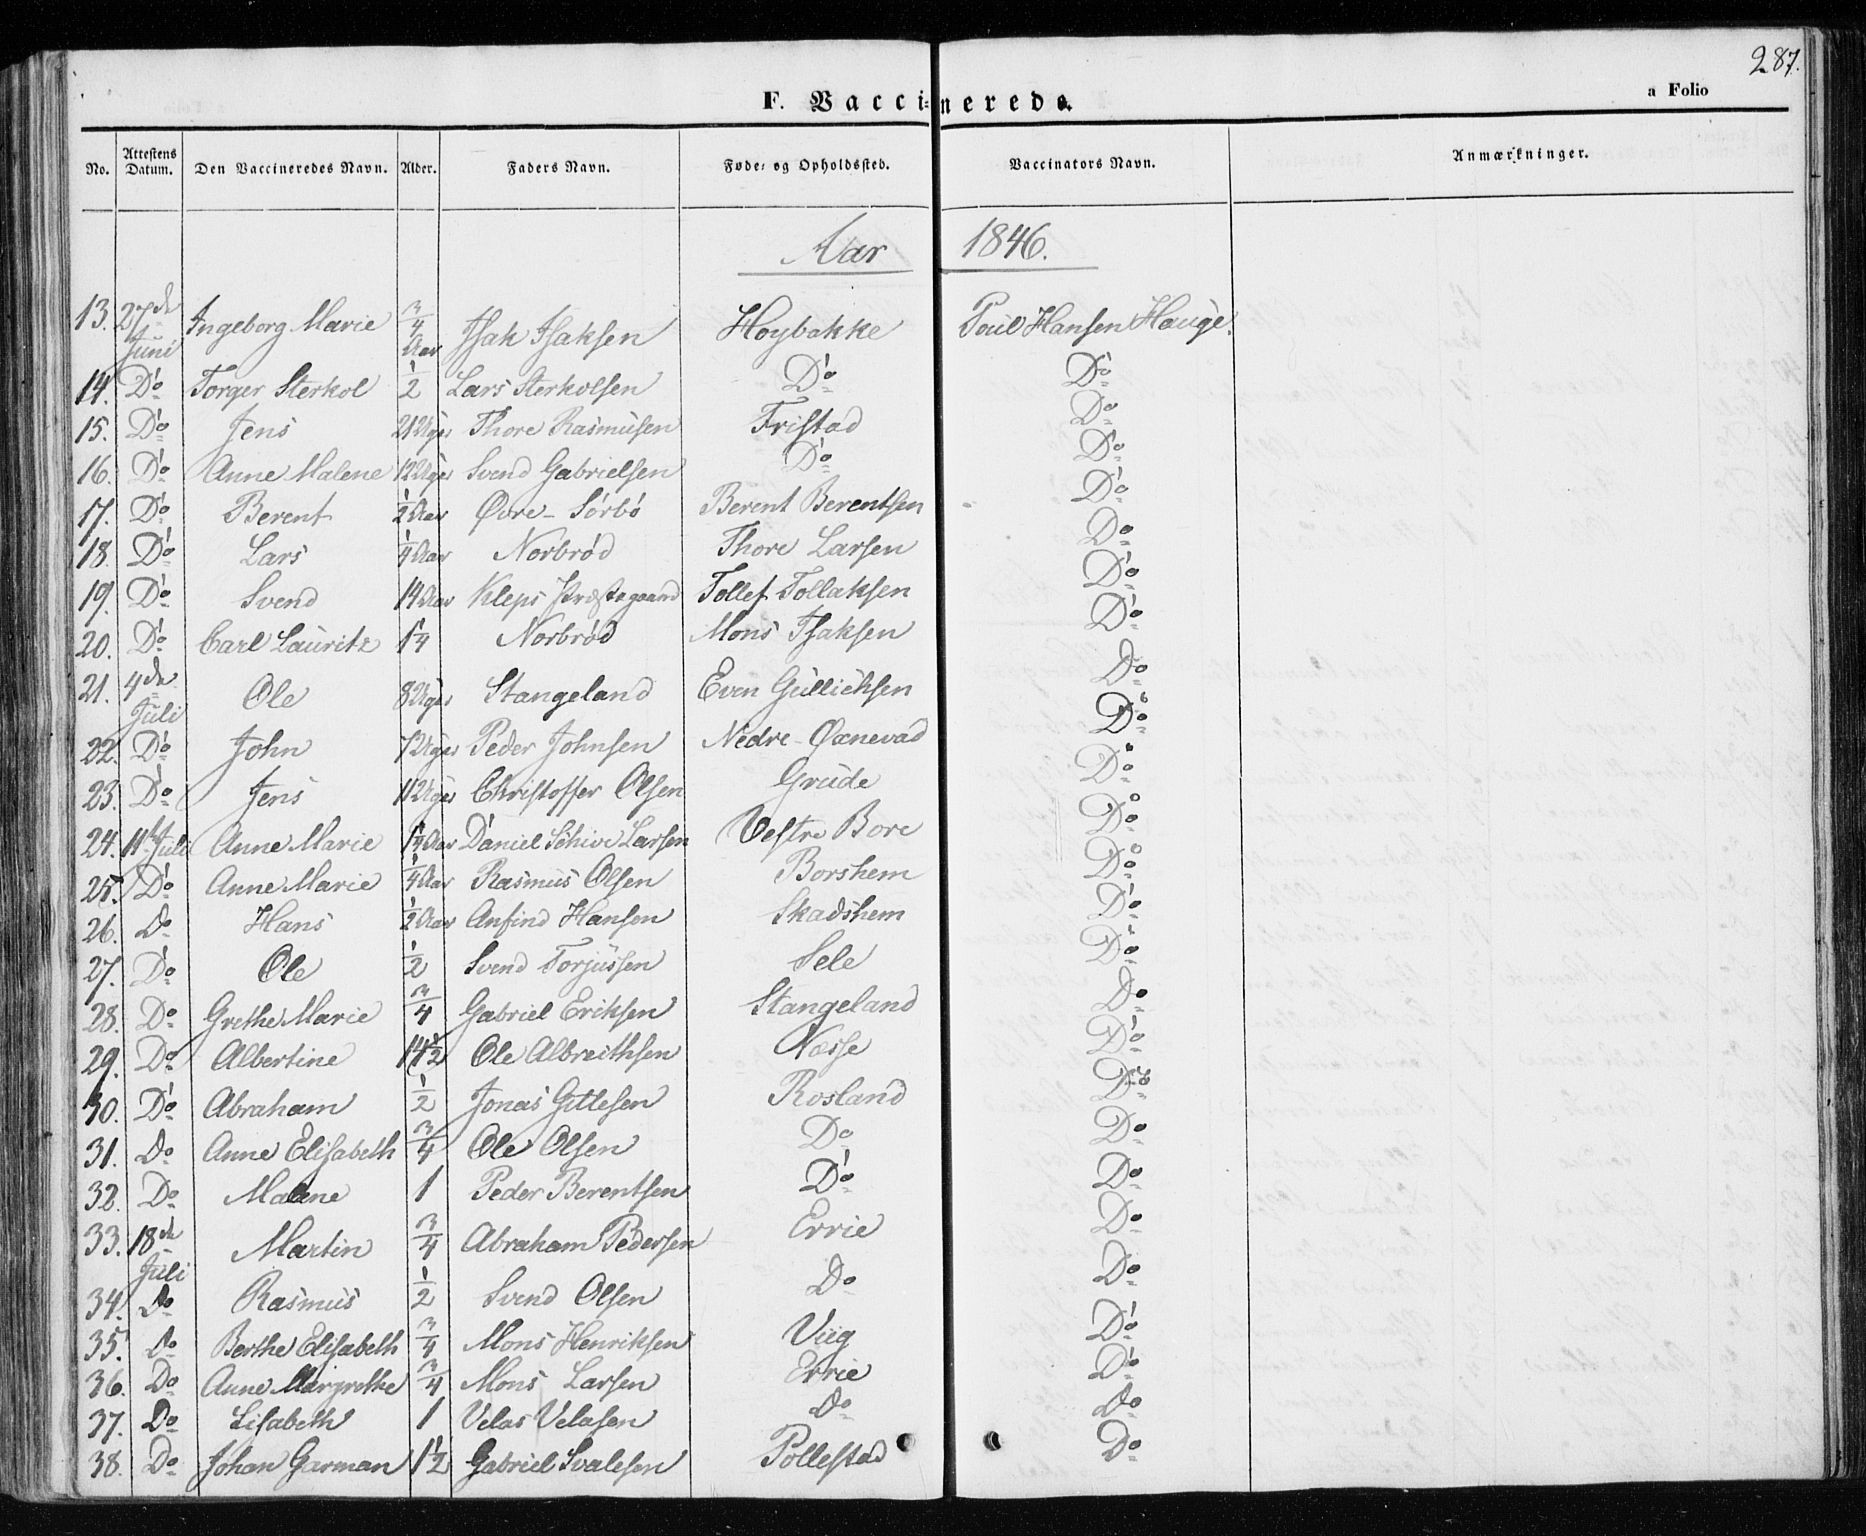 287.
a Folio
F. Vaccinerede.
No. Attestens Datum. Den Vaccineredes Navn. Alder. Faders Navn. Føde- og Opholdssted. Vaccinators Navn. Anmærkninger.
Aar 1846.
13. 27de Juni Ingeborg Marie 3/4 Aar Isak Isaksen Høybakke Poul Hansen Hauge.
14. Do Torger Sterkol 1/2 Lars Sterkolsen Do Do
15. Do Jens 21 Uger Thore Rasmusen Fristad Do
16. Do Anne Malene 12 Uger Svend Gabrielsen Do Do
17. Do Berent 1/2 Aar Øvre-Sørbø Berent Berentsen Do
18. Do Lars 1/4 Aar Norbrød Thore Larsen Do
19. Do Svend 14 Aar Kleps Præstegaard Tollef Tollaksen Do
20. Do Carl Lauritz 1 1/4 Norbrød Mons Isaksen Do
21. 4de Juli Ole 8 Uger Stangeland Even Gullichsen Do
22. Do John 7 Uger Peder Johnsen Nedre-Øxnevad Do
23. Do Jens 11 Uger Christoffer Olsen Grude Do
24. 11te Juli Anne Marie 1 1/4 Aar Daniel Schive Larsen Vestre Bore Do
25. Do Anne Marie 1/4 Aar Rasmus Olsen Borshem Do
26. Do Hans 1/2 Aar Anfind Hansen Skadshem Do
27. Do Ole 1/2 Svend Torjussen Sele Do
28. Do Grethe Marie 3/4 Gabriel Eriksen Stangeland Do
29. Do Albertine 14 1/2 Ole Albreithsen Næsse Do
30. Do Abraham 1/2 Jonas Gitlesen Rosland Do
31. Do Anne Elisabeth 3/4 Ole Olsen Do Do
32. Do Malene 1 Peder Berentsen Do Do
33. 18de Juli Martin 3/4 Abraham Pedersen Errie Do
34. Do Rasmus 1/2 Svend Olsen Do Do
35. Do Berthe Elisabeth 3/4 Mons Henriksen Viig Do
36. Do Anne Margrethe 3/4 Mons Larsen Errie Do
37. Do Lisabeth 1 Velas Velasen Do Do
38. Do Johan Garman 1 1/2 Gabriel Svalesen Pollestad Do